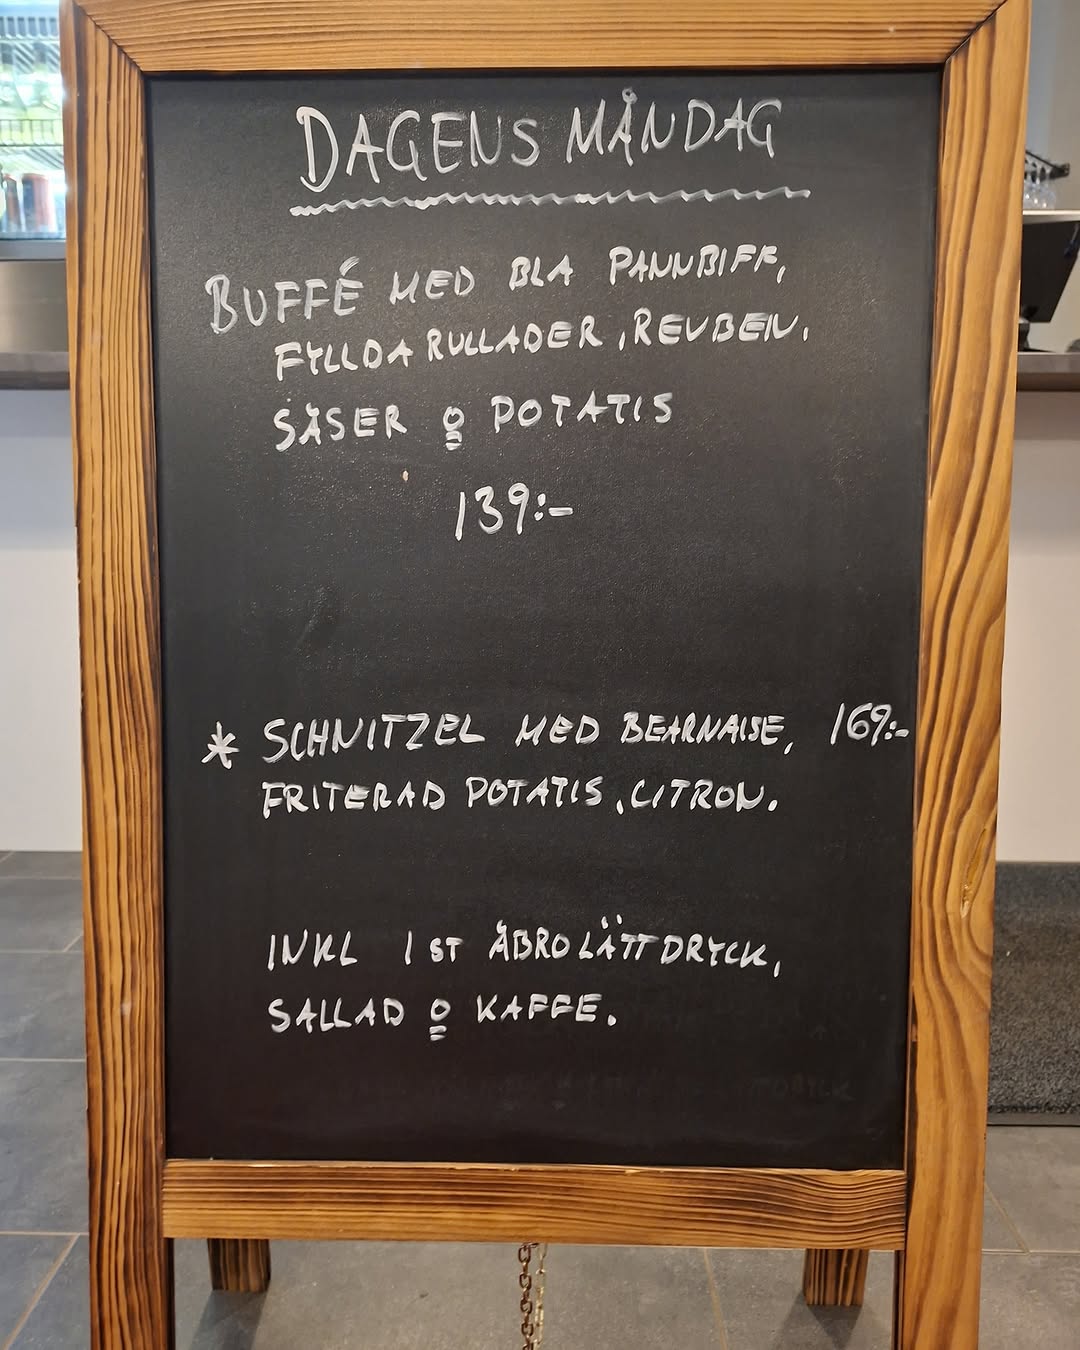 DAGENS MÅNDAG
BUFFÉ MED BLA PANNBIFF,
FYLLDA RULLADER, REUBEN,
SÅSER O POTATIS
139:-
* SCHNITZEL MED BEARNAISE, 169:-
FRITERAD POTATIS, CITRON.
INKL 1 ST ÅBRO LÄTTDRYCK,
SALLAD O KAFFE.